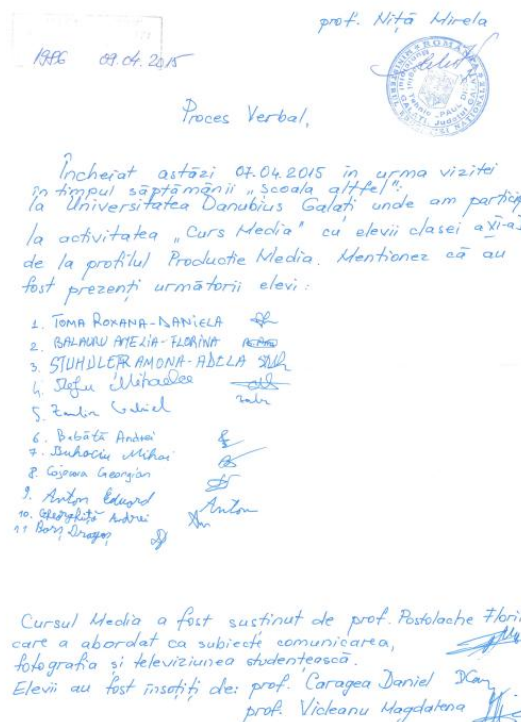 prof. Niță Mirela
1986 09.04.2015
ROMÂNIA
Proces Verbal,
Încheiat astăzi 07.04.2015 în urma vizitei
în timpul săptămânii „Școala altfel":
la Universitatea Danubius Galați unde am particip
la activitatea „Curs Media" cu elevii clasei a XI-a
de la profilul Productie Media. Mentionez că au
fost prezenți următorii elevi:
1. TOMA ROXANA-DANIELA
2. BALAURU AMELIA-FLORINA
3. STUHULER RAMONA-ADELA
4. Ștefu Mihaela
5. Gabriel
6. Băbătă Andrei
7. Buhociu Mihai
8. Cojocaru Georgian
9. Anton Eduard Anton
10. Gheorghiță Andrei
11 Borș Dragoș
Cursul Media a fost sustinut de prof. Postolache Florin
care a abordat ca subiecte comunicarea,
fotografia și televiziunea studențească.
Elevii au fost însoțiți de: prof. Caragea Daniel
prof. Vicleanu Magdalena